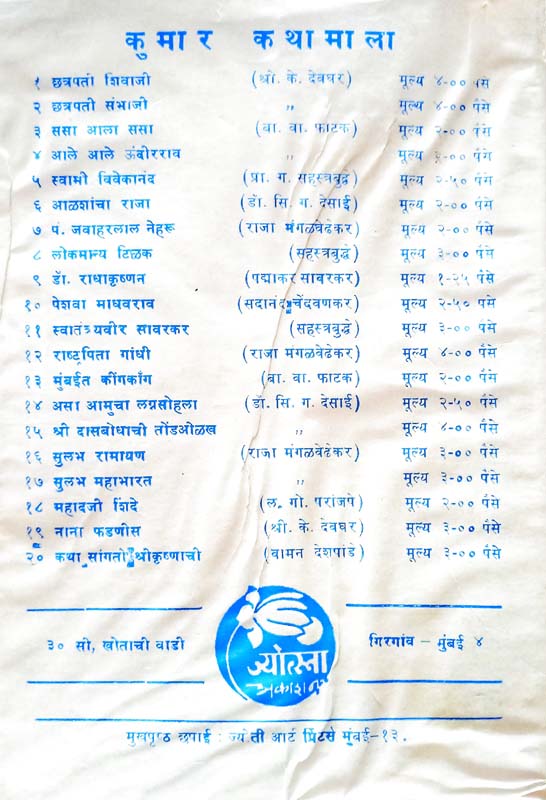 कुमार कथामाला
१ छत्रपती शिवाजी (श्री. के. देवधर) मूल्य ४-०० पैसे
२ छत्रपती संभाजी " मूल्य ४-०० पैसे
३ ससा आला ससा (बा. वा. फाटक) मूल्य २-०० पैसे
४ आले आले ऊंबीरराव " मूल्य ३-०० पैसे
५ स्वामी विवेकानंद (प्रा. ग. सहस्त्रबुद्धे) मूल्य २-५० पैसे
६ आळशांचा राजा (डॉ. सि. ग. देसाई) मूल्य २-०० पैसे
७ पं. जवाहरलाल नेहरू (राजा मंगळवेढेकर) मूल्य २-०० पैसे
८ लोकमान्य टिळक (सहस्त्रबुद्धे) मूल्य ३-०० पैसे
९ डॉ. राधाकृष्णन (पद्माकर सावरकर) मूल्य १-२५ पैसे
१० पेशवा माधवराव (सदानंद चेंदवणकर) मूल्य २-५० पैसे
११ स्वातंत्र्यवीर सावरकर (सहस्त्रबुद्धे) मूल्य ३-०० पैसे
१२ राष्ट्रपिता गांधी (राजा मंगळवेढेकर) मूल्य ४-०० पैसे
१३ मुंबईत कींगकाँग (बा. वा. फाटक) मूल्य २-०० पैसे
१४ असा आमुचा लग्नसोहला (डॉ. सि. ग. देसाई) मूल्य २-५० पैसे
१५ श्री दासबोधाची तोंडओळख " मूल्य ४-०० पैसे
१६ सुलभ रामायण (राजा मंगळवेढेकर) मूल्य ३-०० पैसे
१७ सुलभ महाभारत " मूल्य ३-०० पैसे
१८ महादजी शिंदे (ल. गो. परांजपे) मूल्य २-०० पैसे
१९ नाना फडणीस (श्री. के. देवधर) मूल्य ३-०० पैसे
२० कथा सांगतो श्रीकृष्णाची (वामन देशपांडे) मूल्य ३-०० पैसे
३० सी, खोताची वाडी
ज्योत्स्ना
प्रकाशन
गिरगांव - मुंबई ४
मुखपृष्ठ छपाई : ज्योती आर्ट प्रिंटर्स मुंबई-१३.